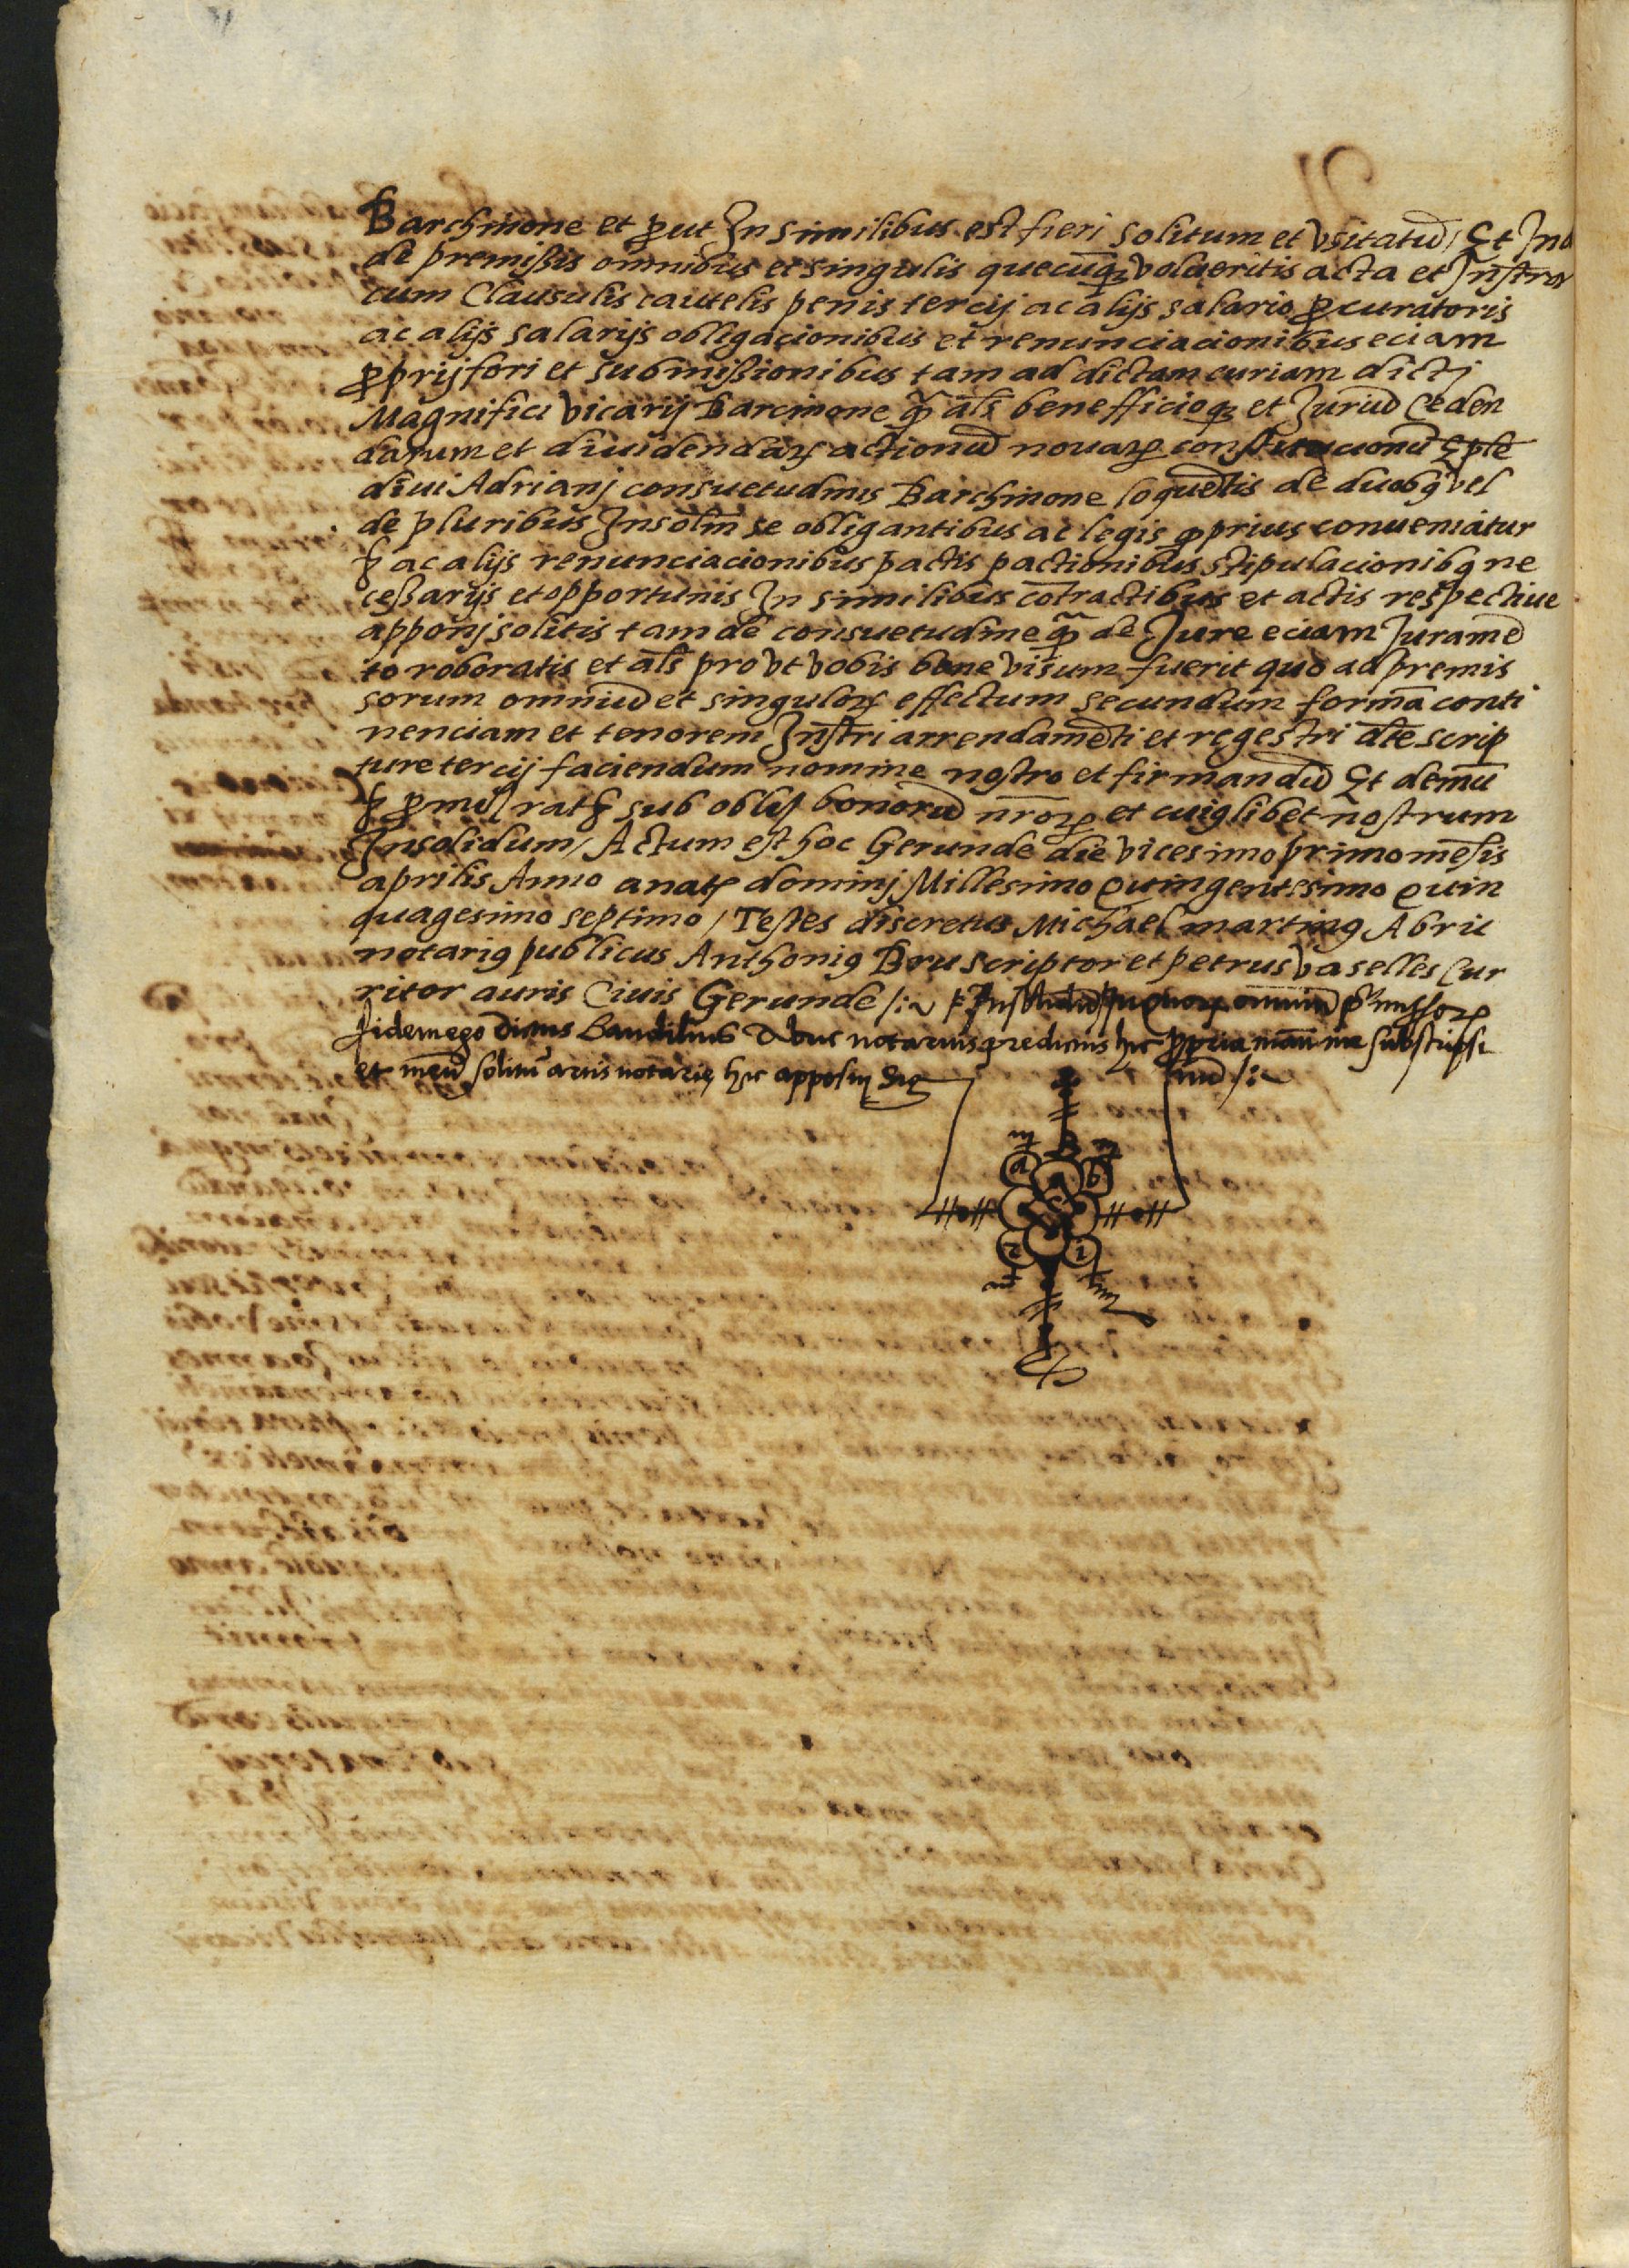 Barchinone et ꝓut In similibus est fieri solitum et vsitatū / Et Ind
de premißis omnibus et singulis quecūqꝫ volueritis acta et Instror
cum Clausulis cautelis penis tercij ac alijs salario ꝓcuratoris
ac alijs salarijs obligacionibus et renunciacionibus eciam
ꝓprij fori et submißionibus tam ad dictam curiam dictj
Magnifici vicarij Barcinone ꝙ̃ als̄ benefficioqꝫ et Juriū Ceden
darum et diuidendaꝝ actionū novaꝝ constitucionū Eple
diui Adrianj consuetudinis Barchinone loquētis de duobꝯ vel
de pluribus Insolm̄ se obligantibus ac legis ꝙ prius conueniatur
ꝑ ac alijs renunciacionibus pactis pactionibus stipulacionibꝯ ne
ceßarijs et opportunis In similibus cōtractibus et actis respectiue
apponj solitis tam de consuetudine ꝙ̃ de Jure eciam Juramē
to roboratis et als̄ pro vt vobis bene visum fuerit quo ad premis
sorum omniū et singuloꝝ effectum secundum formā conti
nenciam et tenorem Instri arrendamēti et regestri dt̄e scrip
ture tercij faciendum nomine nostro et firmandū Et demū
ꝓmis̄ rat̄ sub obliḡ bonorū nr̄oꝝ et cuiꝯlibet nostrum
Insolidum / Actum est hoc Gerunde die vicesimo primo mēsis
aprilis Anno a nat̄ dominj Millesimo Quingentesimo Quin
quagesimo septimo / Testes discretus Michael martinꝯ Abric
notariꝯ publicus Anthoniꝯ Bru scriptor et petrus vaselles Cur
ritor auris Ciuis Gerunde /:~ omniū p̄missoꝝ
fidem ego Dictus Baudilius notarius predictus hic ꝓpria manu me subscripsi
et meū solitū artis notarie hic apposui Sig num /:~
a b
z i